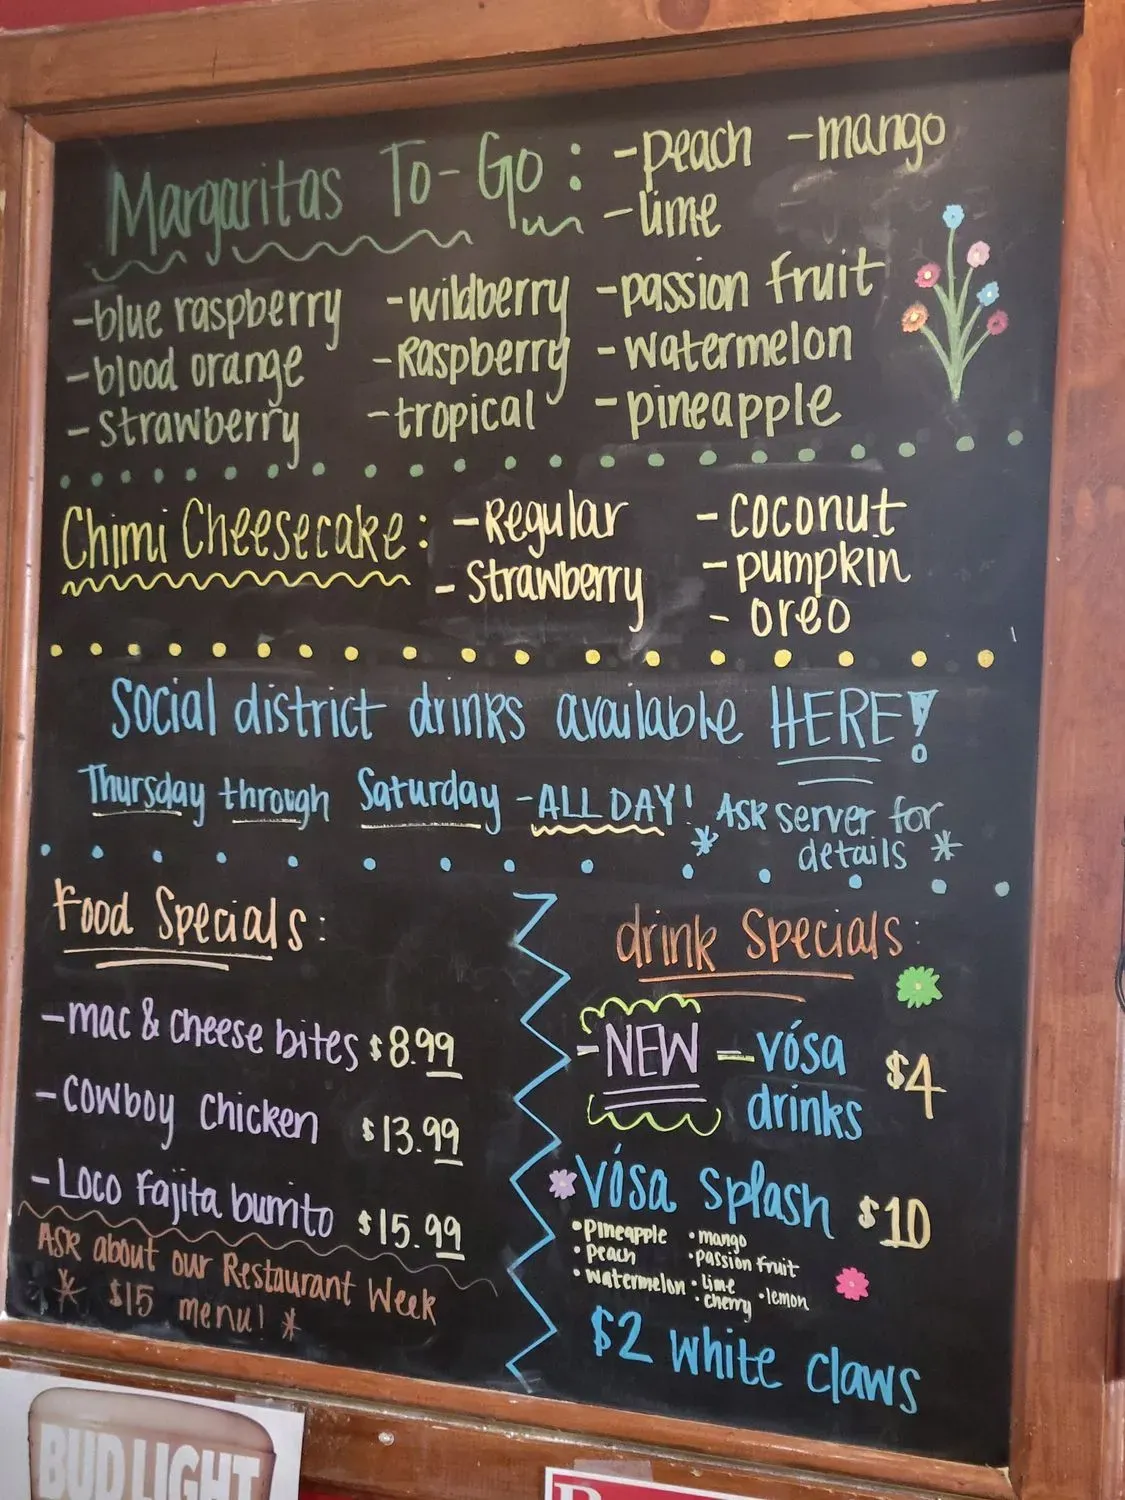 Margaritas To-Go: -peach -mango
-lime
-blue raspberry -wildberry -passion fruit
-blood orange -Raspberry -watermelon
-Strawberry -tropical -pineapple
Chimi Cheesecake: -Regular -coconut
-Strawberry -pumpkin
-oreo
Social district drinks available HERE!
Thursday through Saturday -ALL DAY! *Ask server for
details*
Food Specials:
-mac & cheese bites $8.99
-cowboy chicken $13.99
-Loco Fajita burrito $15.99
Ask about our Restaurant Week
* $15 menu! *
drink Specials:
-NEW - vósa $4
drinks
vósa Splash $10
•pineapple •mango
•peach •passion fruit
•watermelon •lime •lemon
•cherry
$2 white claws
BUD LIGHT